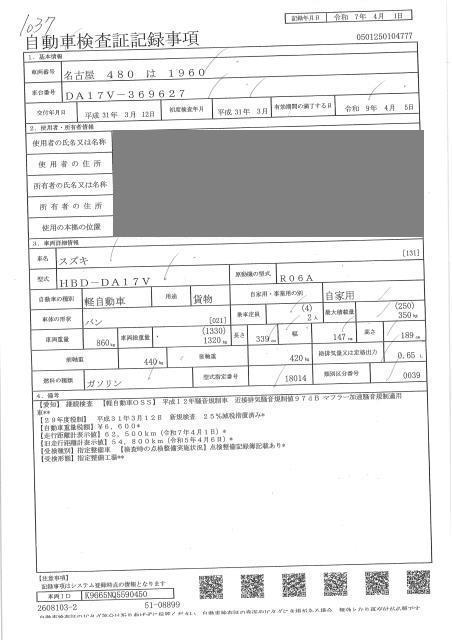 1037
記録年月日 令和 7年 4月 1日
自動車検査証記録事項 0501250104777
1. 基本情報
車両番号 名古屋 480 は 1960
車台番号 DA17V-369627
交付年月日 平成31年 3月 12日 初度検査年月 平成31年 3月 有効期間の満了する日 令和 9年 4月 5日
2. 使用者・所有者情報
使用者の氏名又は名称
使用者の住所
所有者の氏名又は名称
所有者の住所
使用の本拠の位置
3. 車両詳細情報
車名 スズキ [131]
型式 HBD-DA17V 原動機の型式 R06A
自動車の種別 軽自動車 用途 貨物 自家用・事業用の別 自家用
車体の形状 バン [021] 乗車定員 (4) 2人 最大積載量 (250) 350kg
車両重量 860kg 車両総重量 (1330) 1320kg 長さ 339cm 幅 147cm 高さ 189cm
前軸重 440kg 後軸重 420kg 総排気量又は定格出力 0.65 L
燃料の種類 ガソリン 型式指定番号 18014 類別区分番号 0039
4. 備考
【愛知】 継続検査 【軽自動車OSS】 平成12年騒音規制車 近接排気騒音規制値97dB マフラー加速騒音規制適用
車**
【29年度税制】 平成31年3月12日 新規検査 25%減税措置済み*
【自動車重量税額】¥6,600*
【走行距離計表示値】62,500km(令和7年4月1日)*
【旧走行距離計表示値】54,800km(令和5年4月6日)*
【受検種別】指定整備車 【検査時の点検整備実施状況】点検整備記録簿記載あり*
【受検形態】指定整備工場**
【注意事項】
記録事項はシステム登録時点の情報となります
車両ID K9665NQ5590450
2608103-2 51-08899